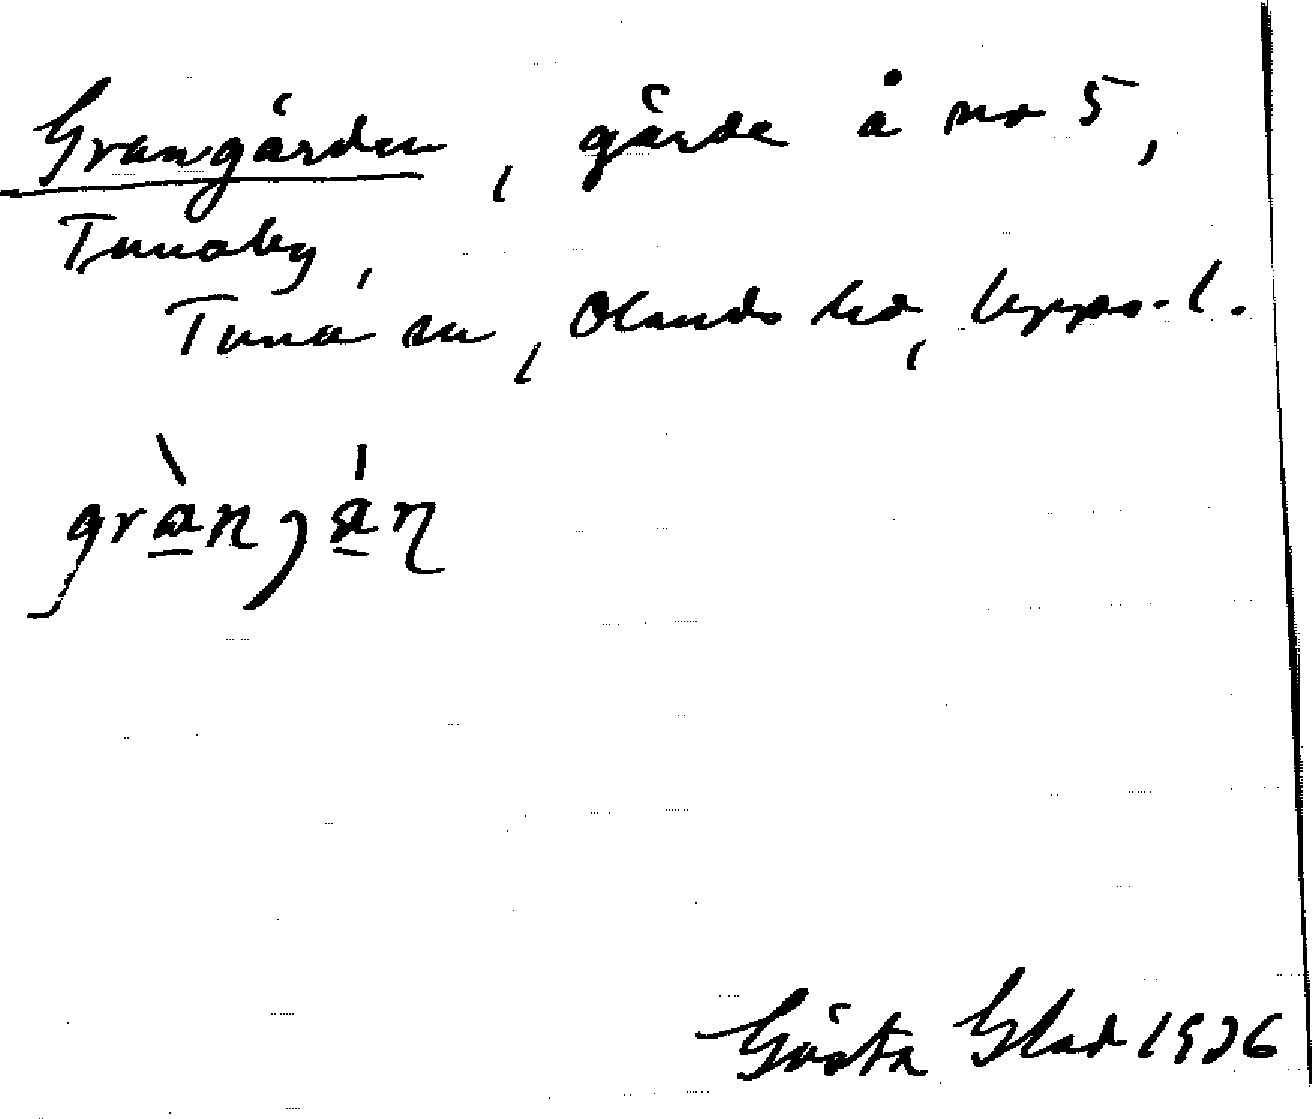 Grangärden, gärde å no 5,
Tunaby,
Tuna sn, Olands hd, Upps. l.
Gösta Glad 1926